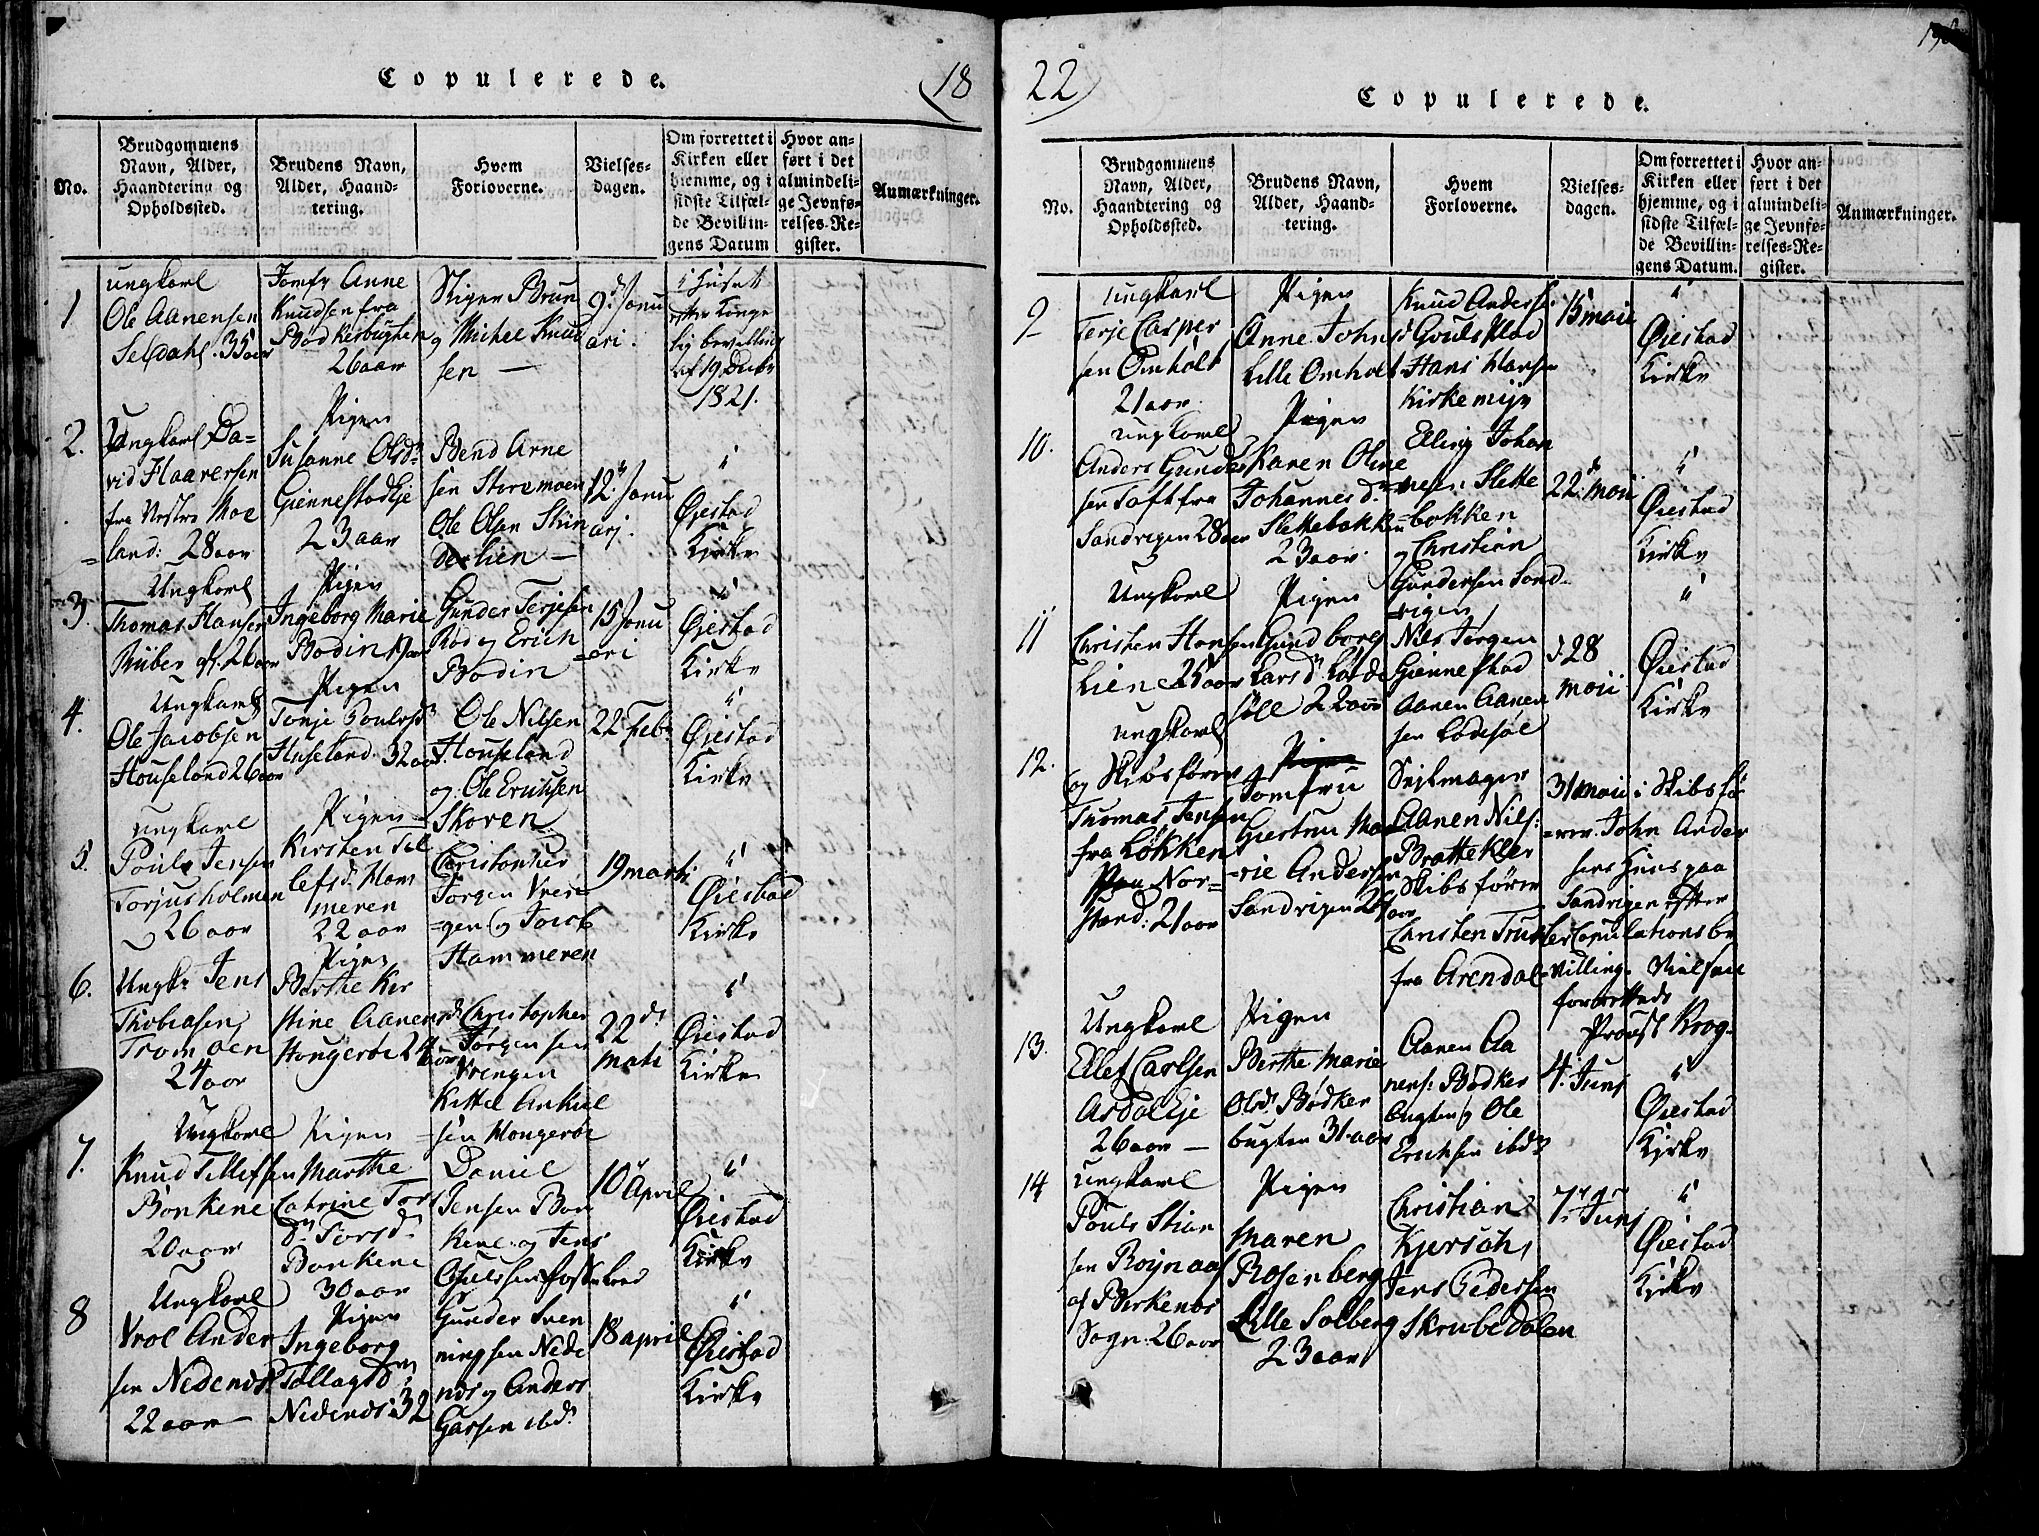 Copulerede.
18
No.
Brudgommens
Navn, Alder,
Haandtering og
Opholdssted.
Brudens Navn,
Alder, Haand-
tering.
Hvem
Forloverne.
Vielses-
dagen.
Om forrettet i
Kirken eller
hjemme, og i
sidste Tilfæl-
de Bevillin-
gens Datum
Hvor an-
ført i det
almindeli-
ge Jevnfø-
relses-Re-
gister.
Anmærkninger.
1
ungkarl
Ole Aanensen
Seldahl. 35 aar
Jomfr Anne
Knudsen fra
Bødkerbugten
26 aar
Stiger Brun
og Michel Knud
sen —
9d Janu
ari.
i Huset
efter Konge
lig bevilling
af 19 Decbr
1821.
2.
Ungkarl Da-
vid Haaversen
fra Vestre Moe
land: 28 aar
Pigen
Susanne Olsd.
Giennestadeje
23 aar
Bend Arne
sen Storemoen
Ole Olsen Skin
derlien —
12. Janu
arj.
"
Øiestad
Kirke
3.
Ungkarl
Thomas Hansen
26 aar
Pigen
Ingeborg Marie
Bodin 19 aar
Gunder Terjesen
Rød og Erich
Bodin
15 Janu
ari
"
Øiestad
Kirke
4.
Ungkarl
Ole Jacobsen
Houseland 26 aar
Pigen
Tonje Poulsd.
Huseland. 32 aar
Ole Nilsen
Houseland
og Ole Erichsen
Skoren.
22 Feb.
"
Øiestad
Kirke
5.
ungkarl
Poul Jensen
Torjusholmen
26 aar
Pigen
Kirsten Tel
lefsd. Ham
meren
22 aar
Christopher
Jørgen Vren
gen og Jacob
Hammeren
19 marti
"
Øiestad
Kirke
6.
Ungk. Jens
Thobiasen
Tromøen
24 aar
Pigen
Berthe Kir
stine Aanensd.
Hougerøe 24 aar
Christopher
Jørgensen
Vrengen
Kittel Ankiel
sen Hougerøe
22d.
Marti
"
Øiestad
Kirke
7.
Ungkarl
Knud Tellefsen
Bonkene
20 aar
Pigen
Marthe
Catrine Tors
d. Torsd.
Bonkene
30 aar
Daniel
Jensen Bon
kene og Jens
10 April
"
Øiestad
Kirke
8
Ungkarl
Vrol Ander
sen Nedenes
22 aar —
Pigen
Ingeborg
Tallagsd.
Nedenes: 32
Gunder Sven
ningsen Nede
nes og Anders
Garsen ibd.
18 april
"
Øiestad
Kirke
22
Copulerede.
No.
Brudgommens
Navn, Alder,
Haandtering og
Opholdssted.
Brudens Navn,
Alder, Haand-
tering.
Hvem
Forloverne.
Vielses-
dagen.
Om forrettet i
Kirken eller
hjemme, og i
sidste Tilfæl-
de Bevillin-
gens Datum.
Hvor an-
ført i det
almindeli-
ge Jevnfø-
relses-Re-
gister.
Anmærkninger.
9
Ungkarl
Terje Casper
sen Omholt
21 aar.
Pigen
Anne Johnsd
Lille Omholt
Knud Anderse
Goulsstad
Hans Hansen
Kirkemyr
15 maii
"
Øiestad
Kirke
10.
ungkarl
Anders Gunder
sen Toft fra
Sandvigen 28 aar
Pigen
Karen Oline
Johannesd.
Slettebakken
23 aar.
Elling Johan
nesen Slette
bakken
og Christian
Gundersen Sand
vigen
22d. Maii
"
Øiestad
Kirke
11
Ungkarl
Christen Hansen
Lien 25 aar
Pigen
Gundborg
Larsd. Løde
søll 22 aar
Nils Jørgen
Giennestad
Aanen Aanen
sen Lødesøl
d. 28
maii
"
Øiestad
Kirke
12.
ungkarl
og Skibsfører
Thomas Jensen
fra Løkken
Nor-
stand: 21 aar
Jomfru
Giertru Ma
rie Andersen
Sandvigen 24 aar
Sejlmager
Aanen Nils:
Bratteklev
Skibsfører
Christen Truelsen
fra Arendal
31 maii i Skibsfø
rer John Ander
sens Huus paa
Sandvigen efter
Copulations be
villing. Vielsen
forrettede
Proust Krog.
13.
Ungkarl
Ellef Carlsen
Asdaleje
26 aar —
Pigen
Berthe Marie
Olsd. Bødker
bugten 31 aar
Aanen Aa
nens: Bødker
bugten og Ole
Erichsen ibd.
4. Junj
"
Øiestad
Kirke
14
ungkarl
Pouls Stian
sen Røjnaas
af Birkenes
Sogn. 26 aar
Pigen
Maren
Rosenberg
Lille Solberg
23 aar
Christian
Jens Pedersen
Skrubedalen
7. Junj
"
Øiestad
Kirke